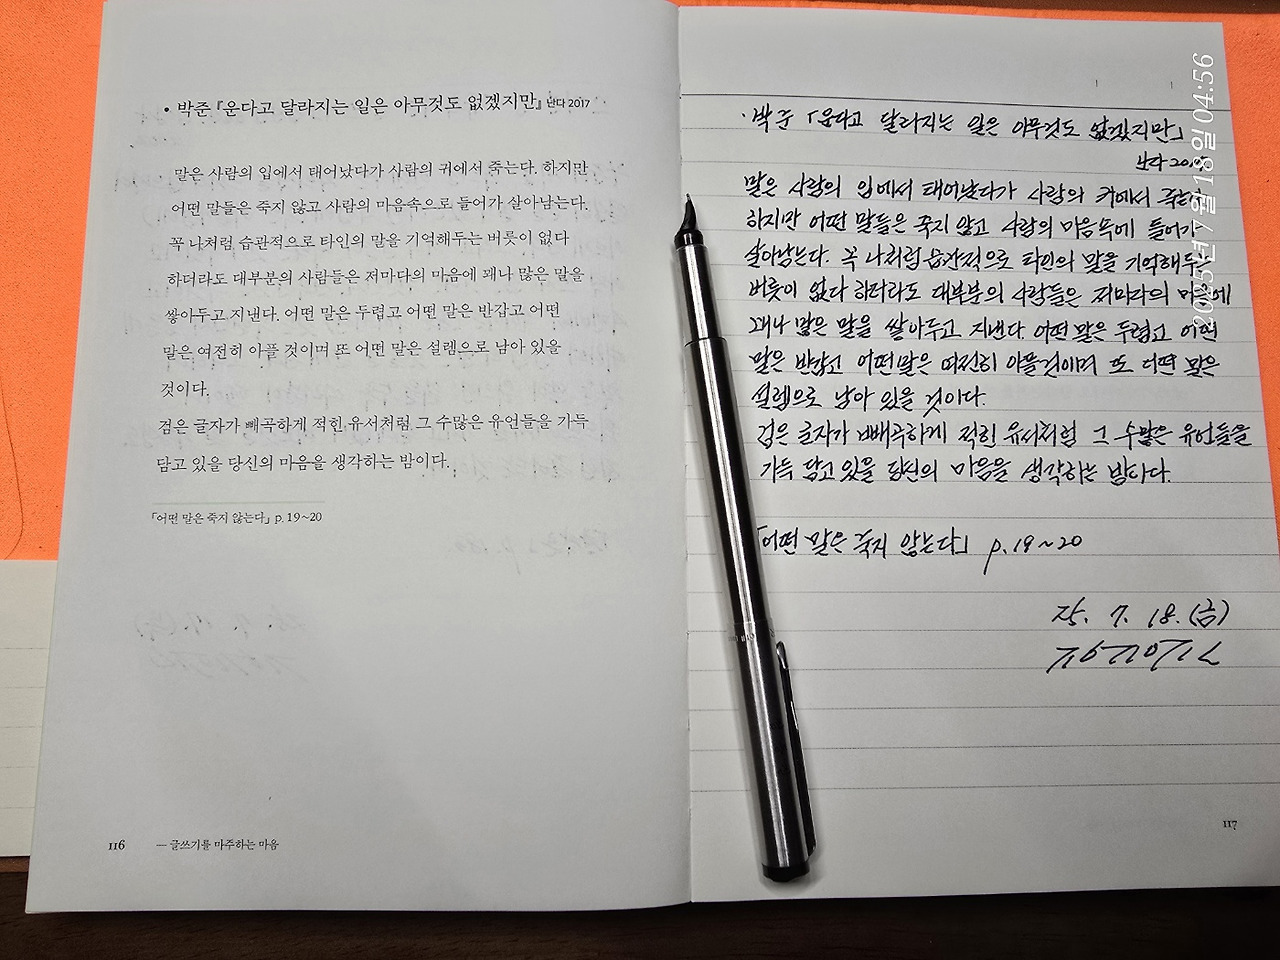 • 박준 『운다고 달라지는 일은 아무것도 없겠지만』 난다 2017
말은 사람의 입에서 태어났다가 사람의 귀에서 죽는다. 하지만
어떤 말들은 죽지 않고 사람의 마음속으로 들어가 살아남는다.
꼭 나처럼 습관적으로 타인의 말을 기억해두는 버릇이 없다
하더라도 대부분의 사람들은 저마다의 마음에 꽤나 많은 말을
쌓아두고 지낸다. 어떤 말은 두렵고 어떤 말은 반갑고 어떤
말은 여전히 아플 것이며 또 어떤 말은 설렘으로 남아 있을
것이다.
검은 글자가 빼곡하게 적힌 유서처럼 그 수많은 유언들을 가득
담고 있을 당신의 마음을 생각하는 밤이다.
「어떤 말은 죽지 않는다」 p. 19~20
116 — 글쓰기를 마주하는 마음
· 박준 「운다고 달라지는 일은 아무것도 없겠지만」
난다
말은 사람의 입에서 태어났다가 사람의 귀에서 죽는
하지만 어떤 말들은 죽지 않고 사람의 마음속에 들어가
살아남는다. 꼭 나처럼 습관적으로 타인의 말을 기억해두는
버릇이 없다 하더라도 대부분의 사람들은 저마다의 마음에
꽤나 많은 말을 쌓아두고 지낸다. 어떤 말은 두렵고 어떤
말은 반갑고 어떤 말은 여전히 아플것이며 또 어떤 말은
설렘으로 남아 있을 것이다.
검은 글자가 빼곡하게 적힌 유서처럼 그 수많은 유언들을
가득 담고 있을 당신의 마음을 생각하는 밤이다.
「어떤 말은 죽지 않는다」 p. 19~20
25. 7. 18. (금)
117
2025년 7월 18일 04:56